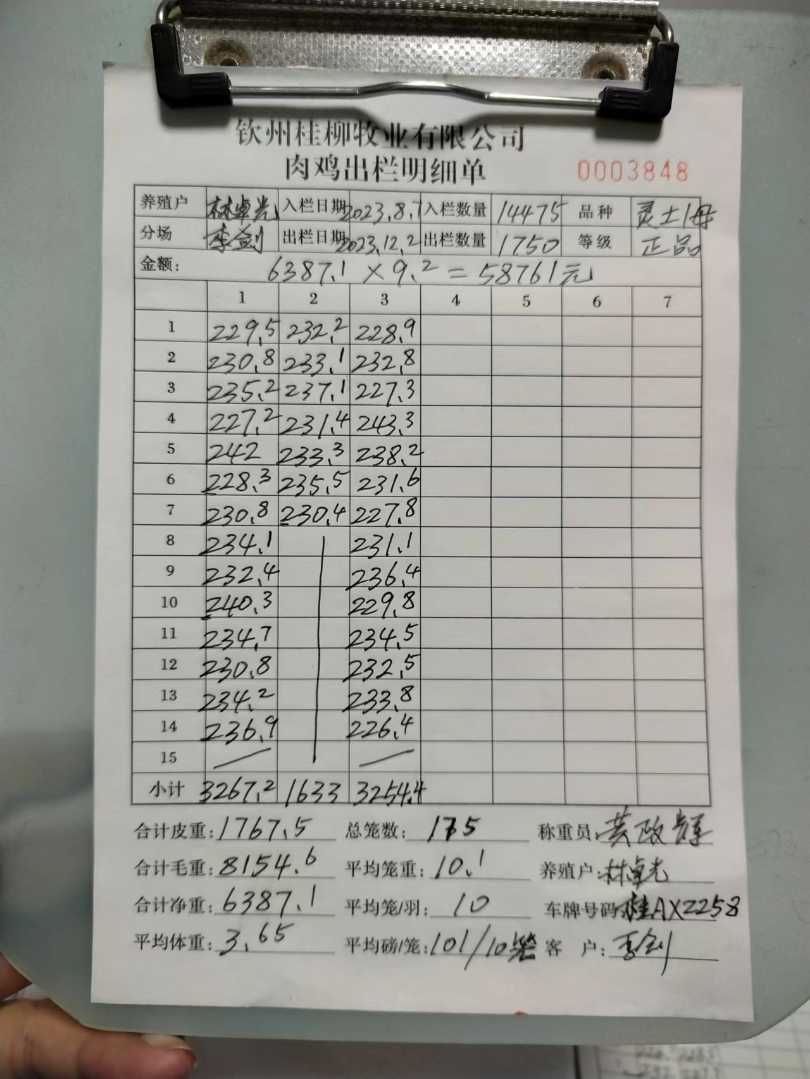 钦州桂柳牧业有限公司
肉鸡出栏明细单 0003848
养殖户 林卓光 入栏日期 2023.8.7 入栏数量 14475 品种 灵土1母
分场 李剑 出栏日期 2023.12.2 出栏数量 1750 等级 正品
金额: 6387.1 × 9.2 = 58761元
1 2 3 4 5 6 7
1 229.5 232.2 228.9
2 230.8 233.1 232.8
3 235.2 237.1 227.3
4 227.2 231.4 243.3
5 242 233.3 238.2
6 228.3 235.5 231.6
7 230.8 230.4 227.8
8 234.1 231.1
9 232.4 236.4
10 240.3 229.8
11 234.7 234.5
12 230.8 232.5
13 234.2 233.8
14 236.9 226.4
15
小计 3267.2 1633 3254.4
合计皮重: 1767.5 总笼数: 175 称重员: 黄政辉
合计毛重: 8154.6 平均笼重: 10.1 养殖户: 林卓光
合计净重: 6387.1 平均笼/羽: 10 车牌号码: 桂AX2258
平均体重: 3.65 平均磅/笼: 101/10笼 客 户: 李剑